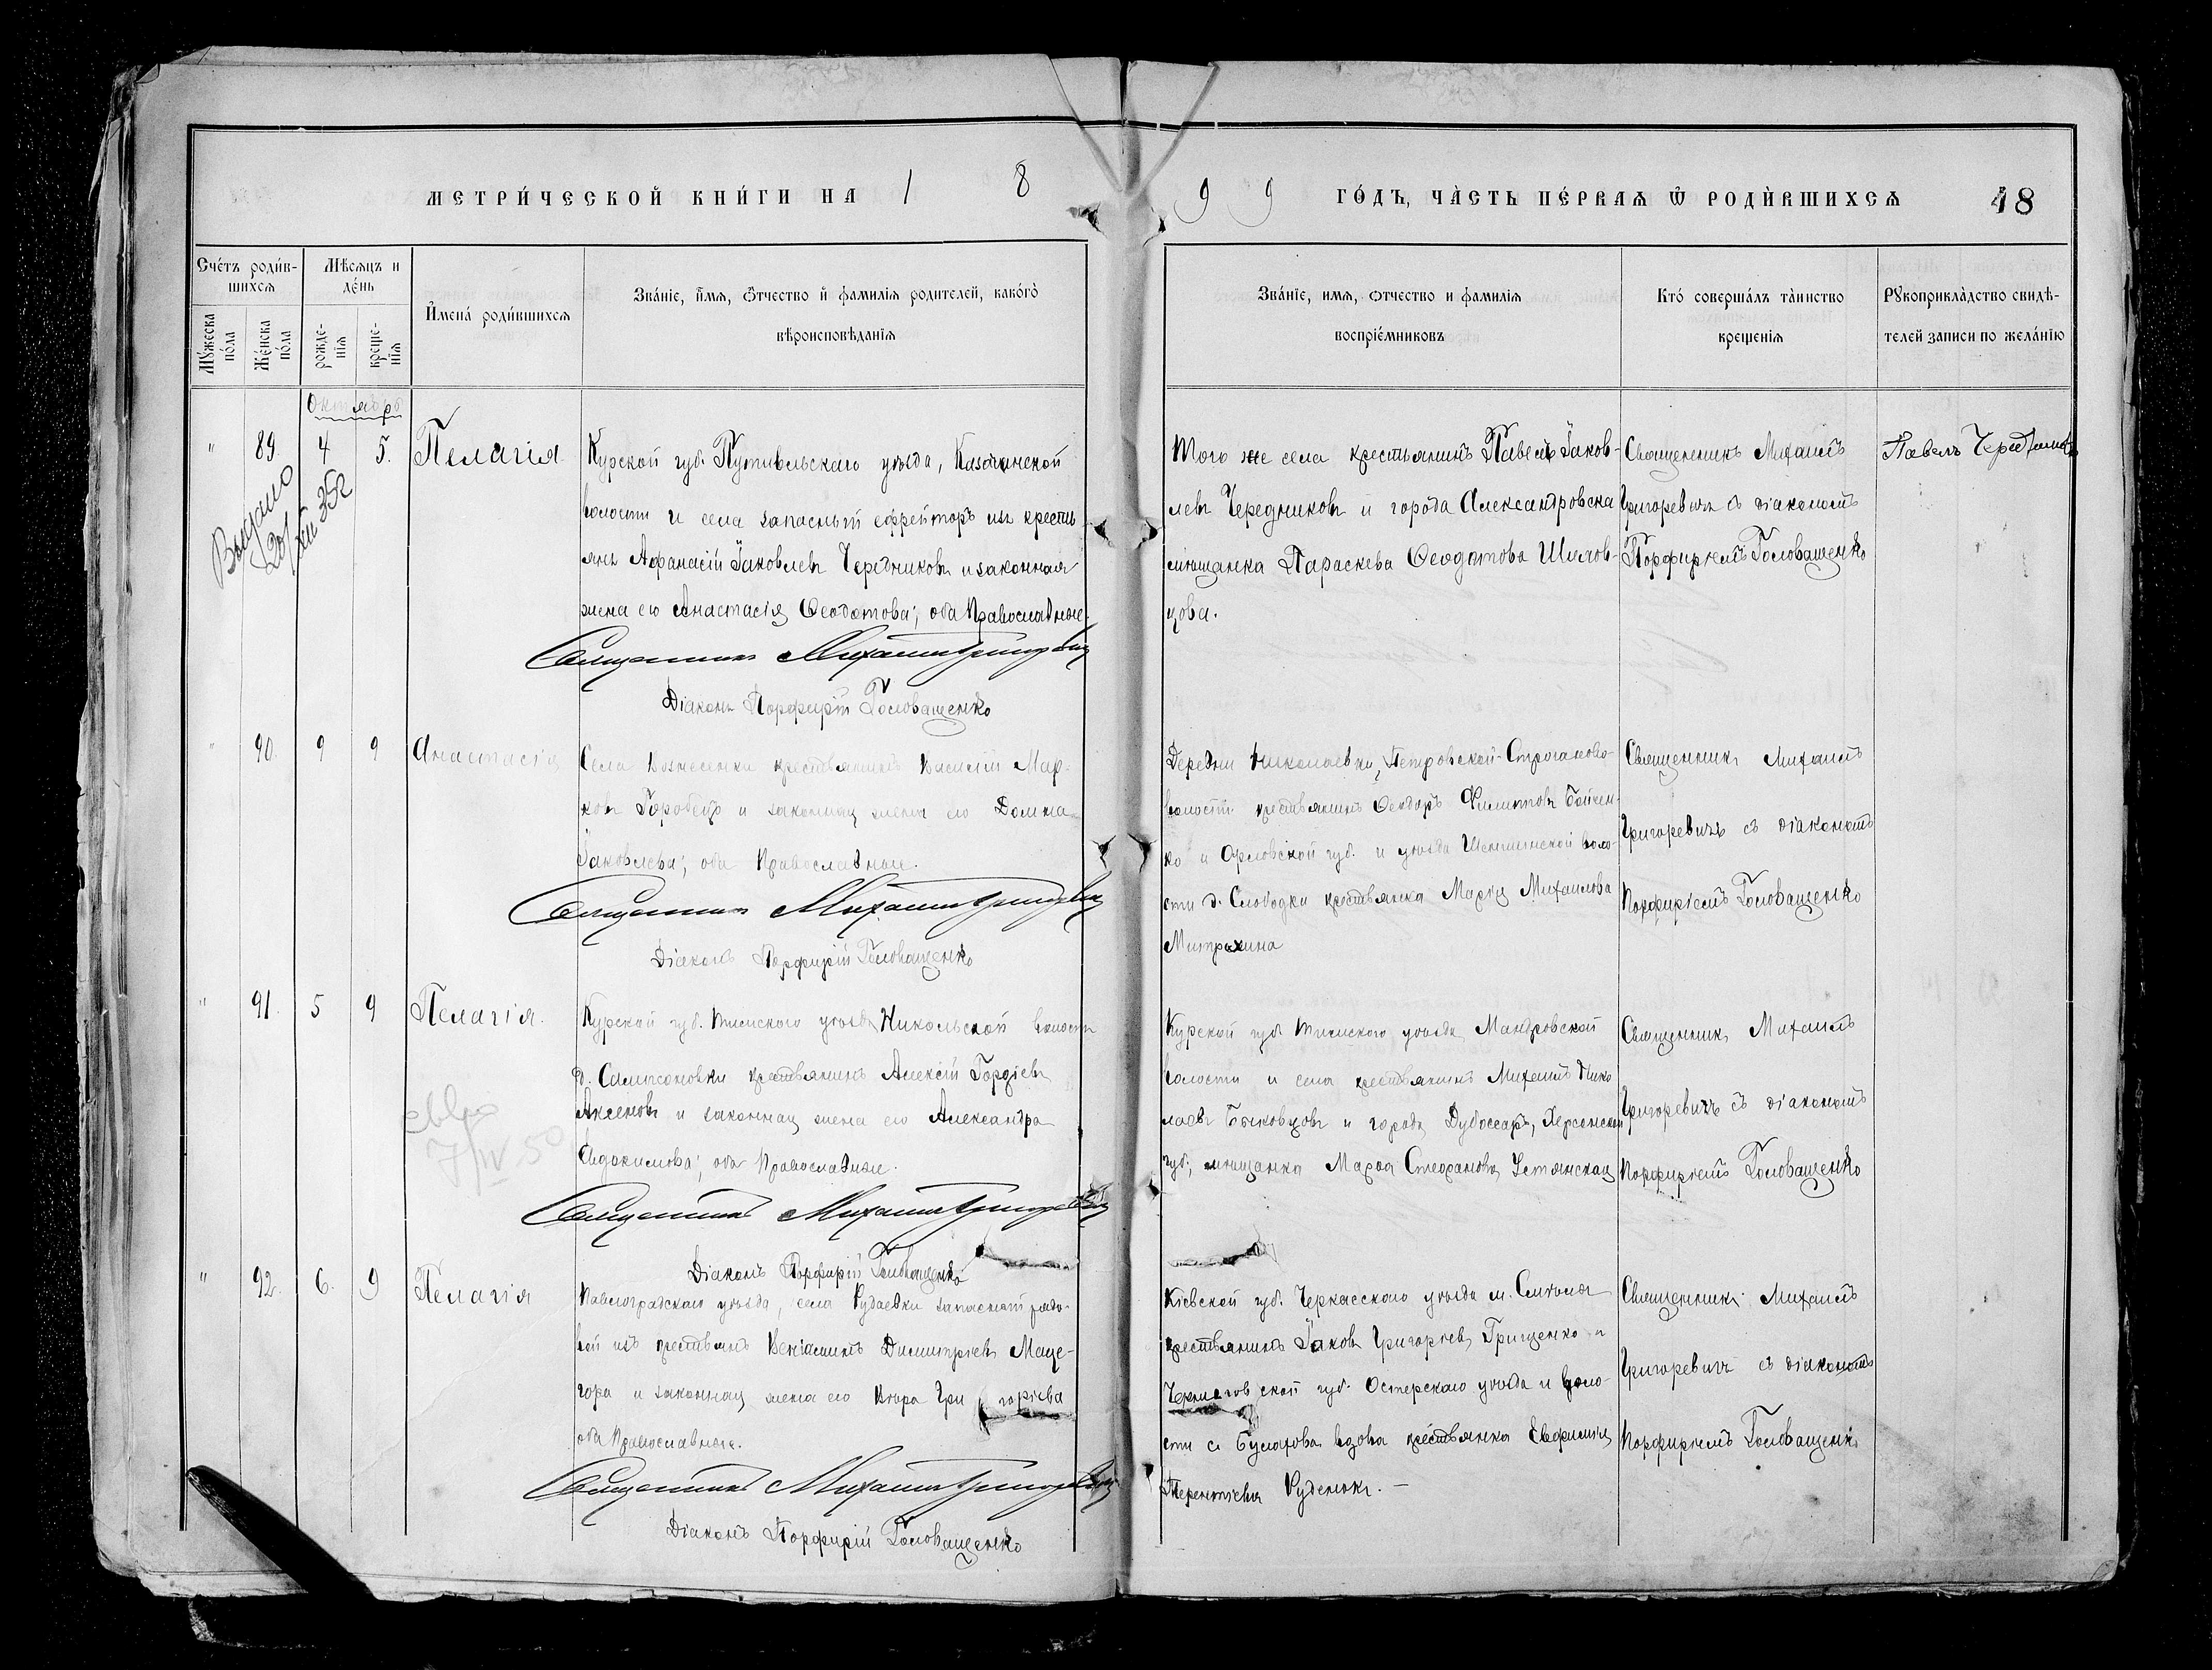 МЕТРИ́ЧЕСКОЙ КНИ́ГИ НА 1 8
9 9 ГО́ДЪ, ЧА̀СТЬ ПЕ́РВАѦ Ѿ РОДИ́ВШИХСѦ 48
Сче́тъ роди́в-
шихсѧ
Мѣсѧцъ и
де́нь
Мꙋжеска
по́ла
Же́нска
по́ла
рожде-
нїѧ
креще-
нїѧ
И҆мена̀ роди́вшихсѧ
Зва́нїе, и҆́мѧ, ѻ҆́тчество и҆ фамилїѧ родителей, како́гѡ
вѣроисповѣданїѧ
Зва́нїе, имѧ, ѻтчество и фамилїѧ
воспрїе́мниковъ
Кто́ соверша́лъ та̀инство
крещенїѧ
Рꙋкоприкла̀дство свидѣ-
телей записи по жела́нїю
Октябрь
" 89 4 5. Пелагія
Выдано
20/XII 35 г
Курской губ. Путивльскаго уѣзда, Казачанской
волости и села запасный ефрейторъ изъ кресть
янъ Афанасій Іаковлевъ Чередниковъ и законная
жена его Анастасія Ѳеодотова; оба Православные.
Священникъ Михаилъ Григоревичъ
Діаконъ Порфирій Головащенко
Того же села крестьянинъ Павелъ Іаков-
левъ Чередниковъ и города Александровска
мѣщанка Параскева Ѳеодотова Шилов-
цова.
Священникъ Михаилъ
Григоревичъ съ діакономъ
Порфиріемъ Головащенко
Павелъ
" 90. 9 9 Анастасія
Села Вознесенки крестьянинъ Василій Мар-
ковъ Горобецъ и законная жена его Домна
Іаковлева; оба Православные.
Священникъ Михаилъ Григоревичъ
Діаконъ Порфирій Головащенко
Деревни Николаевки, Петровской-Строганово
волости крестьянинъ Ѳеодоръ Филиповъ Бойчен-
ко и Орловской губ. и уѣзда волo-
сти д. Слободки крестьянка Марія Михаилова
Митрохина
Священникъ Михаилъ
Григоревичъ съ діакономъ
Порфиріемъ Головащенко
" 91. 5 9 Пелагія.
7/IV 50
Курской губ. Тимскаго уѣзда Никольской волости
д. Самисоновки крестьянинъ Алексій Гордіевъ
Аксеновъ и законная жена его Александра
Евдокимова; оба Православные.
Священникъ Михаилъ Григоревичъ
Діаконъ Порфирій Головащенко
Курской губ. Тимскаго уѣзда Мандровской
волости и села крестьянинъ Михаилъ Нико
лаевъ Быковцовъ и города Дубоссаръ, Херсонской
губ., мѣщанка Марѳа Стефановa Устянская
Священникъ Михаилъ
Григоревичъ съ діакономъ
Порфиріемъ Головащенко
" 92. 6. 9 Пелагія
Павлоградскаго уѣзда, села запасный рядо-
вой изъ крестьянъ Веніаминъ Димитріевъ Маце-
гора и законная жена его Вѣра Григоріева
оба Православные.
Священникъ Михаилъ Григоревичъ
Діаконъ Порфирій Головащенко
Кіевской губ. Черкасскаго уѣзда м. Смѣлой
крестьянинъ Іаковъ Григоріевъ Грищенко и
Черниговской губ. Остерскаго уѣзда и воло-
сти с. Булахова вдова крестьянка Евфимія
Терентіева Руденокъ. —
Священникъ Михаилъ
Григоревичъ съ діакономъ
Порфиріемъ Головащенко